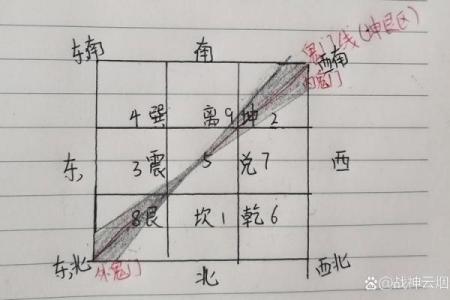 鬼门线(坤艮区)
东南 南 西南
内鬼门
4巽 离9 坤2
东 3震 5 兑7 西
8艮 坎1 乾6
东北 外鬼门 北 西北
@战神云烟